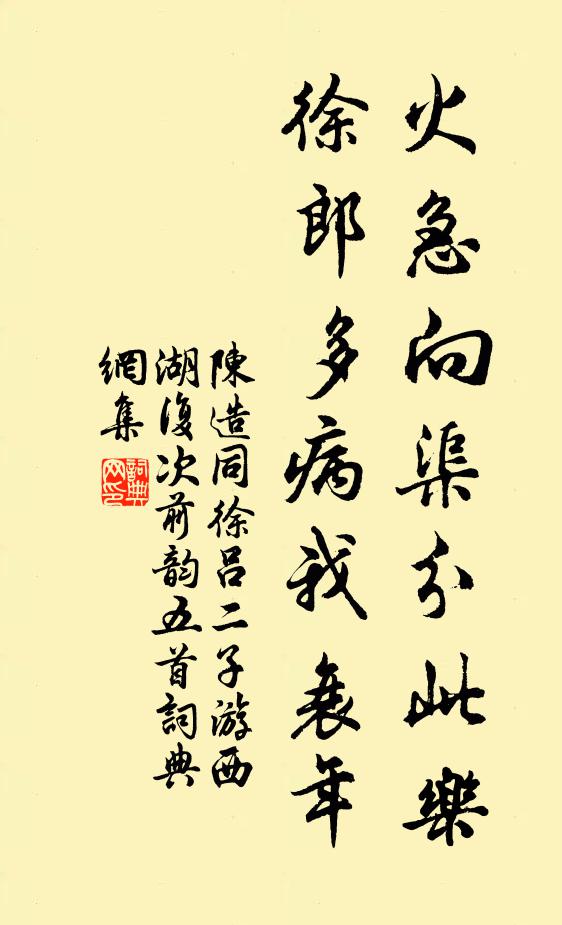 火急向渠分此樂
徐郎多病我衰年
陳造同徐呂二子游西
湖復次前韵五首詞典
網集
詞典
网印